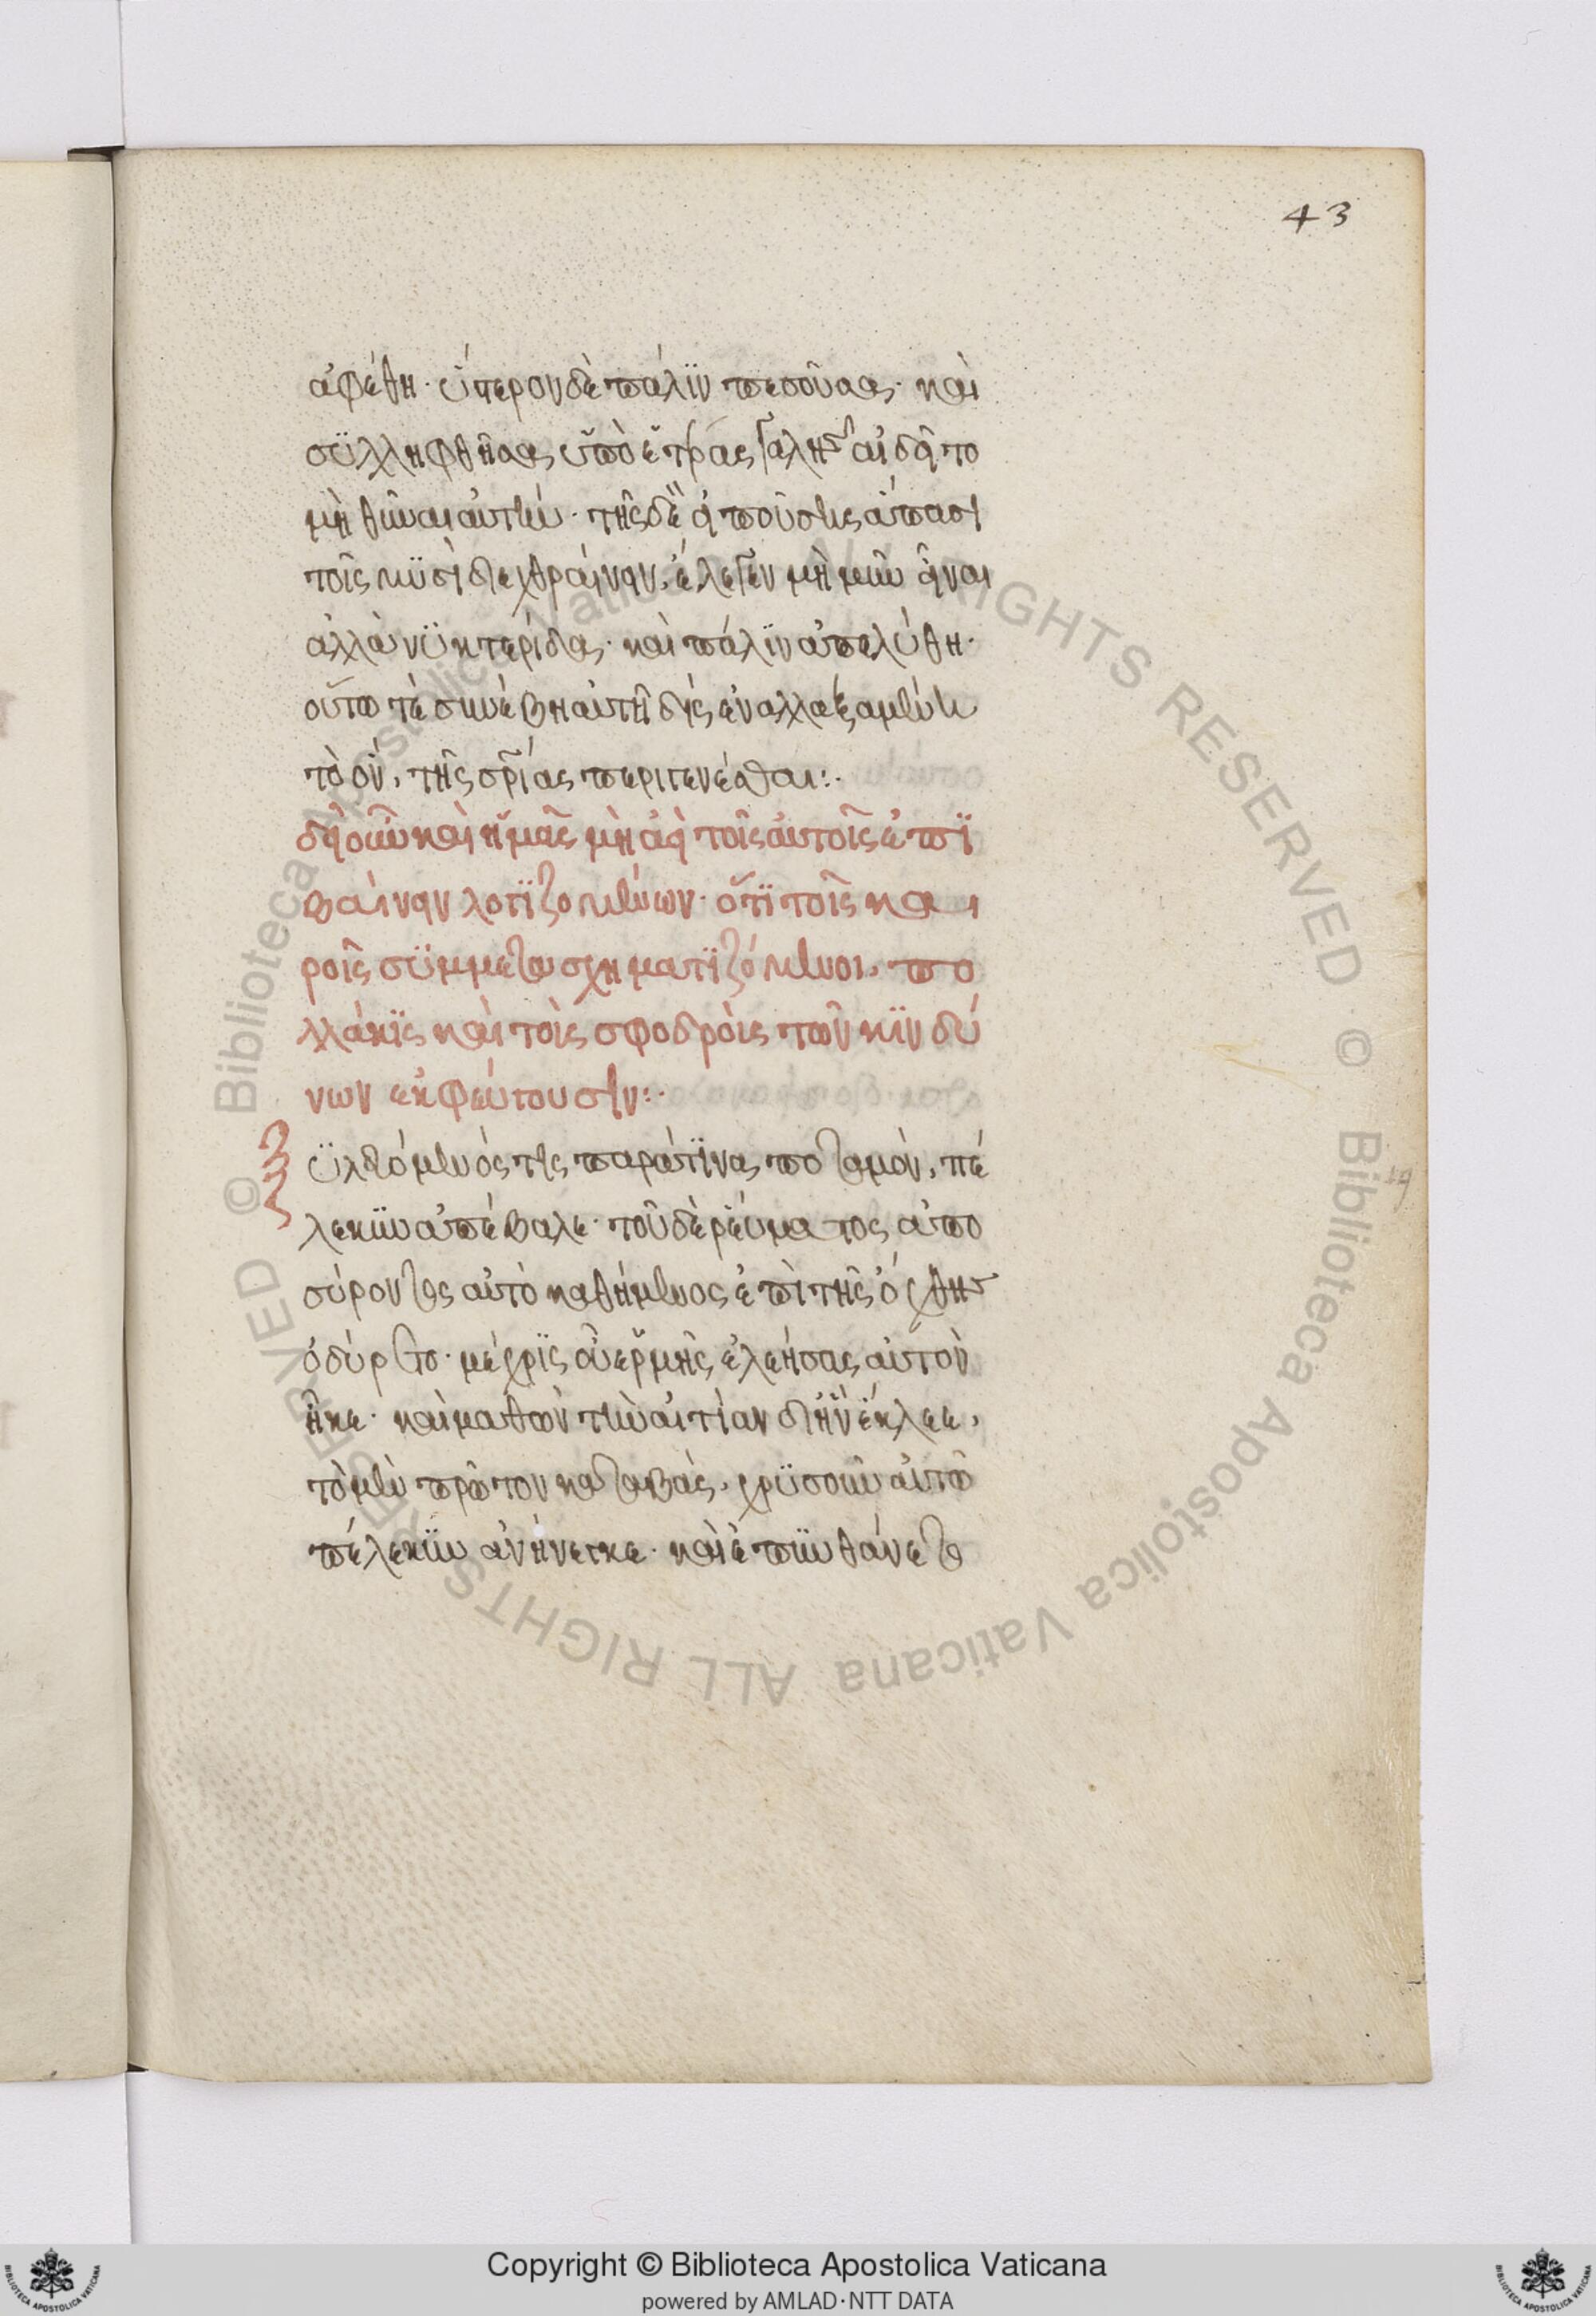 43
ἀφέθη· ὕστερον δὲ πάλϊν πεσοῦσα· καὶ
συλληφθῆσα ὑπὸ ἑτέρας γαλῆς ἐδεῖτο
μὴ θῦναι αὐτήν· τῆς δὲ εἰπούσης ἅπασι
τοῖς μυσὶ διεχθραίνειν, ἔλεγεν μὴ μῦν εἶναι
ἀλλὰ νυκτερίδα· καὶ πάλϊν ἀπελύθη·
οὕτω τὲ συνέβη αὐτῇ δὶς ἐναλλαξαμένη
τὸ ὄν, τῆς σρίας περιγενέσθαι:·
δεῖ οὖν καὶ ἡμᾶς μὴ ἀεὶ τοῖς αὐτοῖς ἐπϊ
βαίνειν λογϊζομένων· ὅτϊ τοῖς και
ροῖς συμμετασχηματϊζόμενοι, πο
λλάκϊς καὶ τοὶς σφοδροὶς τῶν κϊνδύ
νων ἐκφεύγουσιν:·
ξυλευόμενός τις παράτϊνα ποταμὸν, πέ
λεκυν ἀπέβαλε· τοῦ δὲ ῥεύματος ἀπο
σύροντος αὐτὸ καθήμενος ἐπὶ τῆς ὄχθης
ὀδύρετο· μέχρϊς οὗ ἑρμῆς ἐλεήσας αὐτὸν
ἧκε· καὶ μαθὼν τὴν αἰτίαν δι' ἣν ἔκλαιε,
τὸ μὲν πρῶτον καταβὰς, χρυσοῦν αὐτῶ
πέλεκυν ἀνήνεγκε· καὶ ἐπυνθάνετο
Copyright © Biblioteca Apostolica Vaticana
powered by AMLAD·NTT DATA